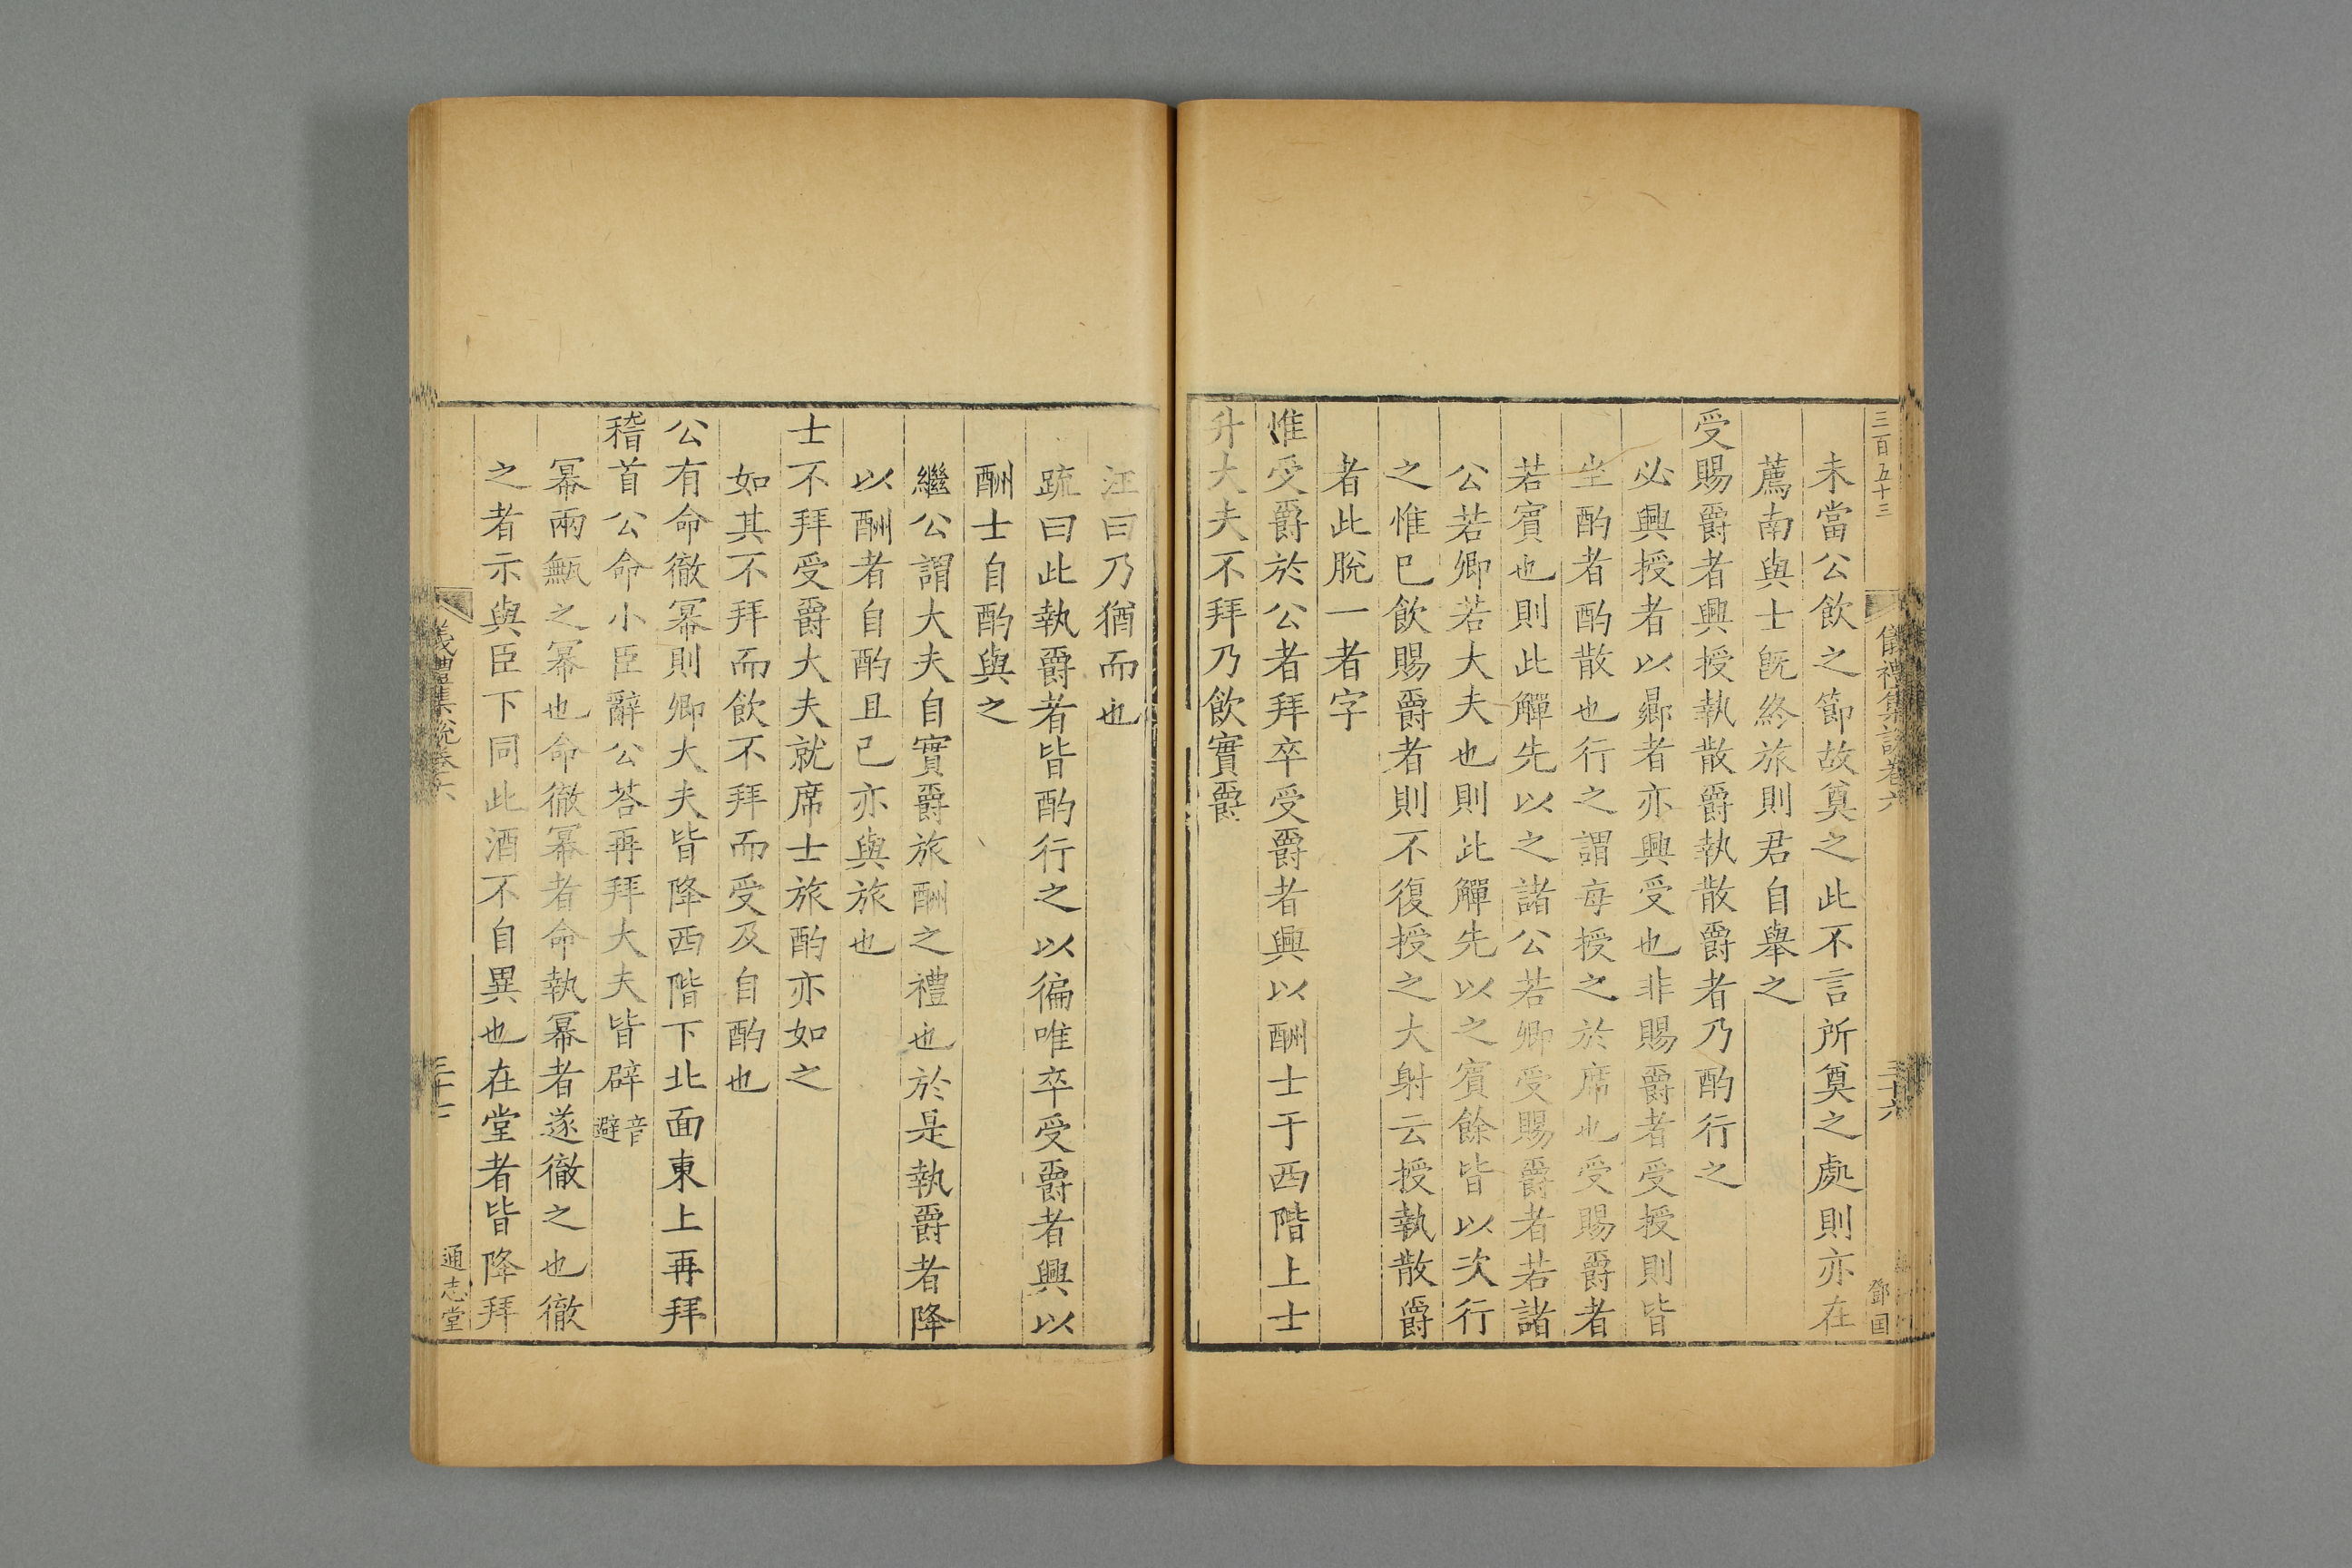 三百五十三
儀禮集說卷六
三十六
鄧国
未當公飲之節故奠之此不言所奠之處則亦在
薦南與士既終旅則君自舉之
受賜爵者興授執散爵執散爵者乃酌行之
必興授者以曏者亦興受也非賜爵者受授則皆
坐酌者酌散也行之謂每授之於席也受賜爵者
若賓也則此觶先以之諸公若卿受賜爵者若諸
公若卿若大夫也則此觶先以之賓餘皆以次行
之惟已飲賜爵者則不復授之大射云授執散爵
者此脫一者字
惟受爵於公者拜卒受爵者興以酬士于西階上士
升大夫不拜乃飲實爵
注曰乃猶而也
疏曰此執爵者皆酌行之以徧唯卒受爵者興以
酬士自酌與之
繼公謂大夫自實爵旅酬之禮也於是執爵者降
以酬者自酌且已亦與旅也
士不拜受爵大夫就席士旅酌亦如之
如其不拜而飲不拜而受及自酌也
公有命徹冪則卿大夫皆降西階下北面東上再拜
稽首公命小臣辭公荅再拜大夫皆辟音避
冪兩甒之冪也命徹冪者命執冪者遂徹之也徹
之者示與臣下同此酒不自異也在堂者皆降拜
儀禮集說卷六
三十七
通志堂